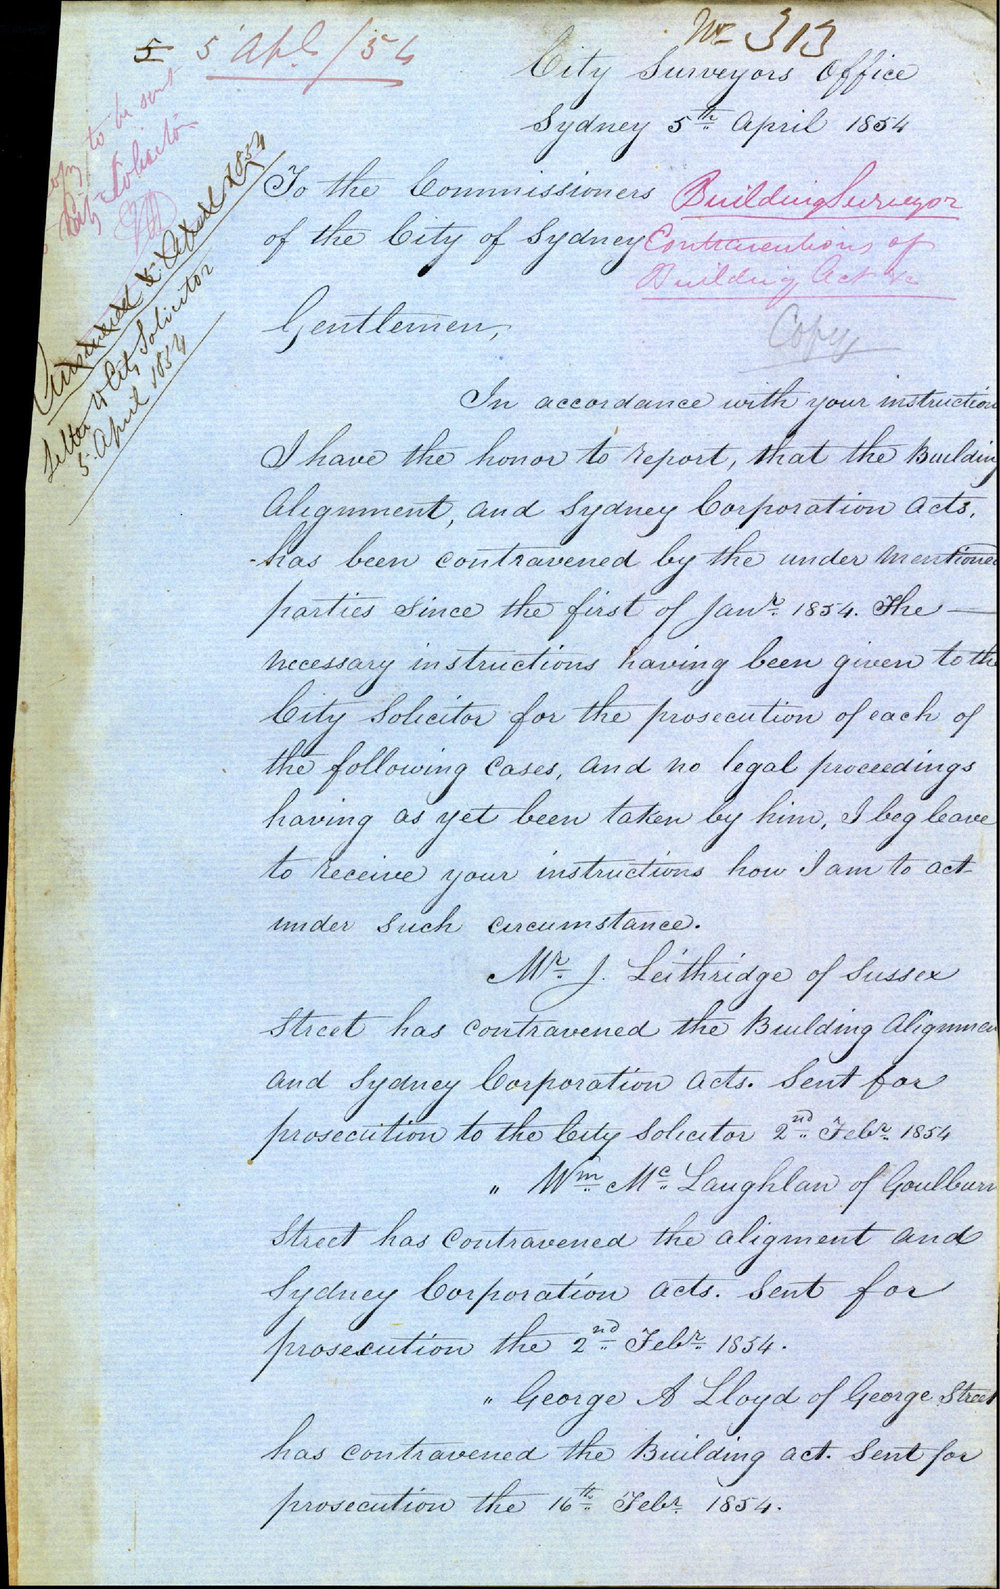 No 313
5 5 Apl/54
City Surveyors Office
Sydney 5th April 1854
Copy to be sent
to City Solicitor
To the Commissioners
of the City of Sydney
Building Surveyor
Contraventions of
Building Act &c
Copy
Letter to City Solicitor
5 April 1854
Gentlemen,
In accordance with your instruction
I have the honor to report, that the Building
Alignment, and Sydney Corporation Acts,
has been contravened by the under mentioned
parties since the first of Janr. 1854. The
necessary instructions having been given to the
City Solicitor for the prosecution of each of
the following cases, and no legal proceedings
having as yet been taken by him, I beg leave
to receive your instructions how I am to act
under such circumstance.
Mr. J. Leithridge of Sussex
Street has contravened the Building Alignmen
and Sydney Corporation Acts. Sent for
prosecution to the City Solicitor 2nd Febr. 1854
" Wm. Mc. Laughlan of Goulburn
Street has contravened the aligment and
Sydney Corporation acts. Sent for
prosecution the 2nd Febr. 1854.
" George A Lloyd of George Street
has contravened the Building act. Sent for
prosecution the 16th Febr. 1854.